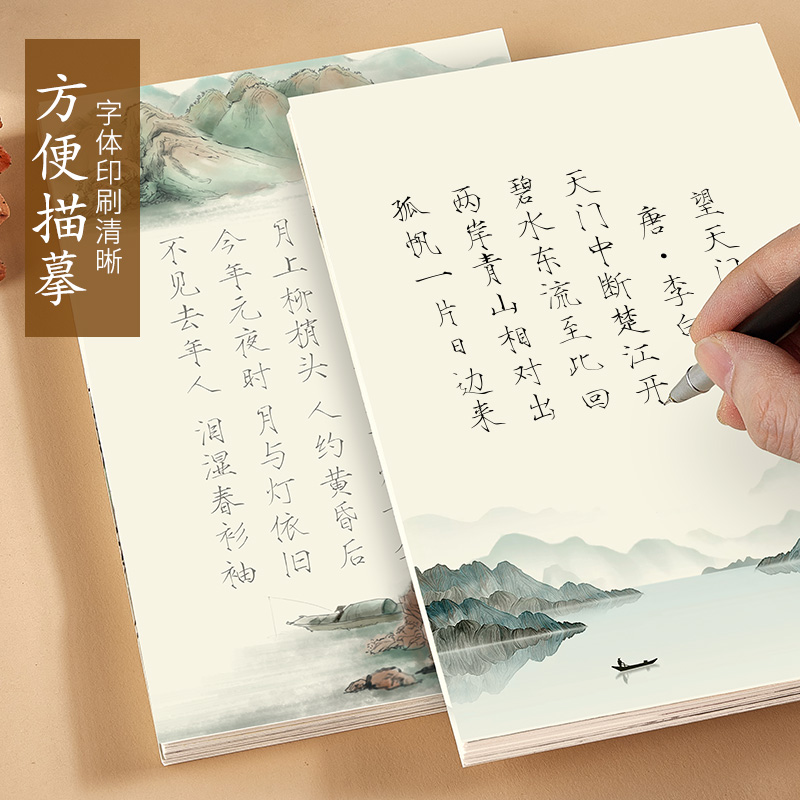 方便描摹
字体印刷清晰
望天门
唐·李白
天门中断楚江开
碧水东流至此回
两岸青山相对出
孤帆一片日边来
月上柳梢头 人约黄昏后
今年元夜时 月与灯依旧
不见去年人 泪湿春衫袖